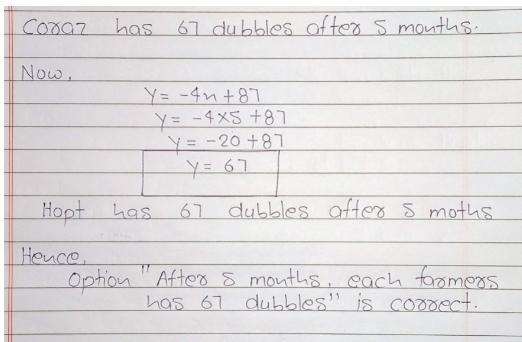 Coraz has 67 dubbles after 5 months.
Now,
y = -4n + 87
y = -4×5 + 87
y = -20 + 87
y = 67
Hopt has 67 dubbles after 5 moths
Hence,
Option "After 5 months, each farmers
has 67 dubbles" is correct.